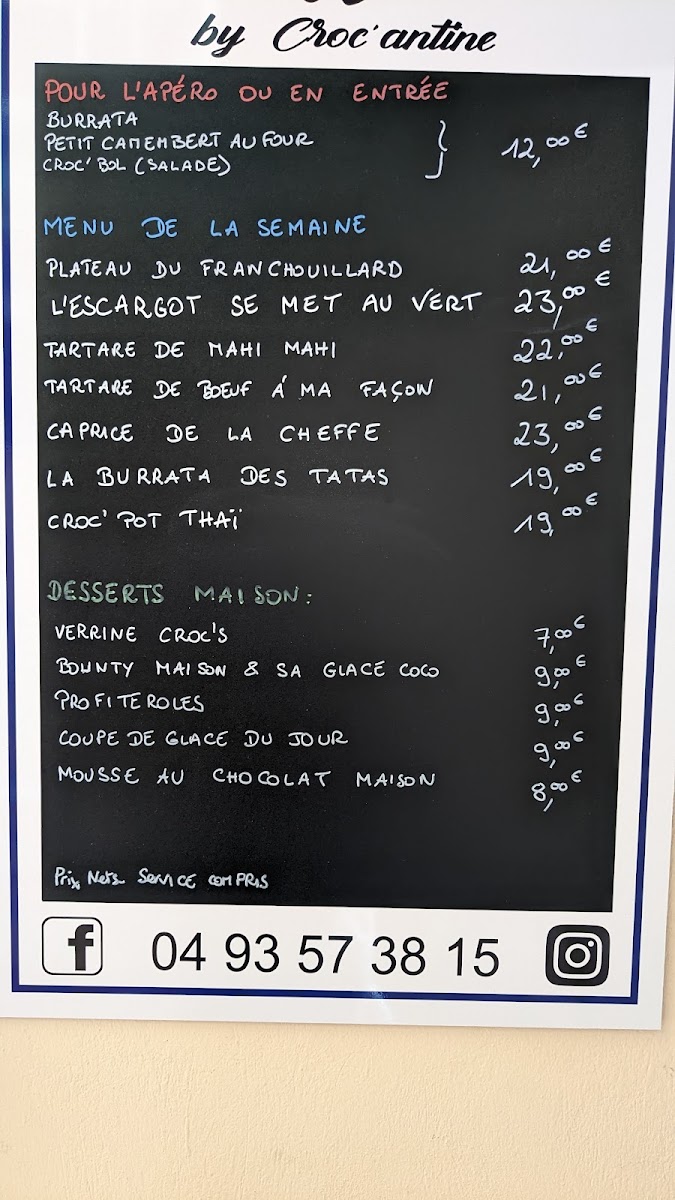 by Croc'antine
POUR L'APÉRO OU EN ENTRÉE
BURRATA
PETIT CAMEMBERT AU FOUR
CROC' BOL (SALADE)
} 12,00€
MENU DE LA SEMAINE
PLATEAU DU FRANCHOUILLARD 21,00€
L'ESCARGOT SE MET AU VERT 23,00€
TARTARE DE MAHI MAHI 22,00€
TARTARE DE BOEUF À MA FAÇON 21,00€
CAPRICE DE LA CHEFFE 23,00€
LA BURRATA DES TATAS 19,00€
CROC' POT THAÏ 19,00€
DESSERTS MAISON:
VERRINE CROC'S 7,00€
BOUNTY MAISON & SA GLACE COCO 9,00€
PROFITEROLES 9,00€
COUPE DE GLACE DU JOUR 9,00€
MOUSSE AU CHOCOLAT MAISON 8,00€
Prix Nets Service COMPRIS
f 04 93 57 38 15